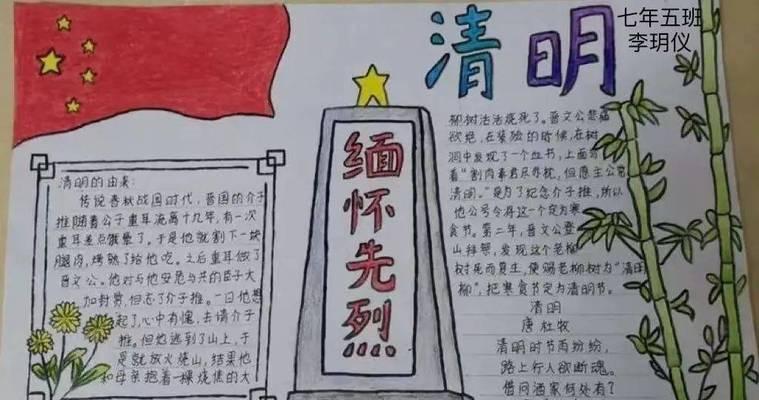 清明
七年五班
李玥仪
缅怀先烈
清明的由来:
传说春秋战国时代,晋国的介子
推随着公子重耳流离十九年,有一次
重耳差点饿晕了。于是他就割下一块
腿肉,烤熟了给他吃。之后重耳做了
晋文公。他对与他安危与共的臣子大
加封赏,但忘了介子推。一日他想
起了,心中有愧,去请介子
推。但他逃到了山上,于
是就放火烧山,结果他
和母亲抱着一棵烧焦的大
柳树活活烧死了。晋文公悲痛
欲绝,在装殓的时候,在树
洞中发现了一个血书,上面写
着"割肉奉君尽丹忱,但愿主公常
清明。"是为了纪念介子推,所以
他公号令将这一个定为寒
食节。第二年,晋文公登
山拜祭,发现这个老柳
树死而复生,便赐老柳树为"清明
柳",把寒食节定为清明节。
清明
唐 杜牧
清明时节雨纷纷,
路上行人欲断魂。
借问酒家何处有?